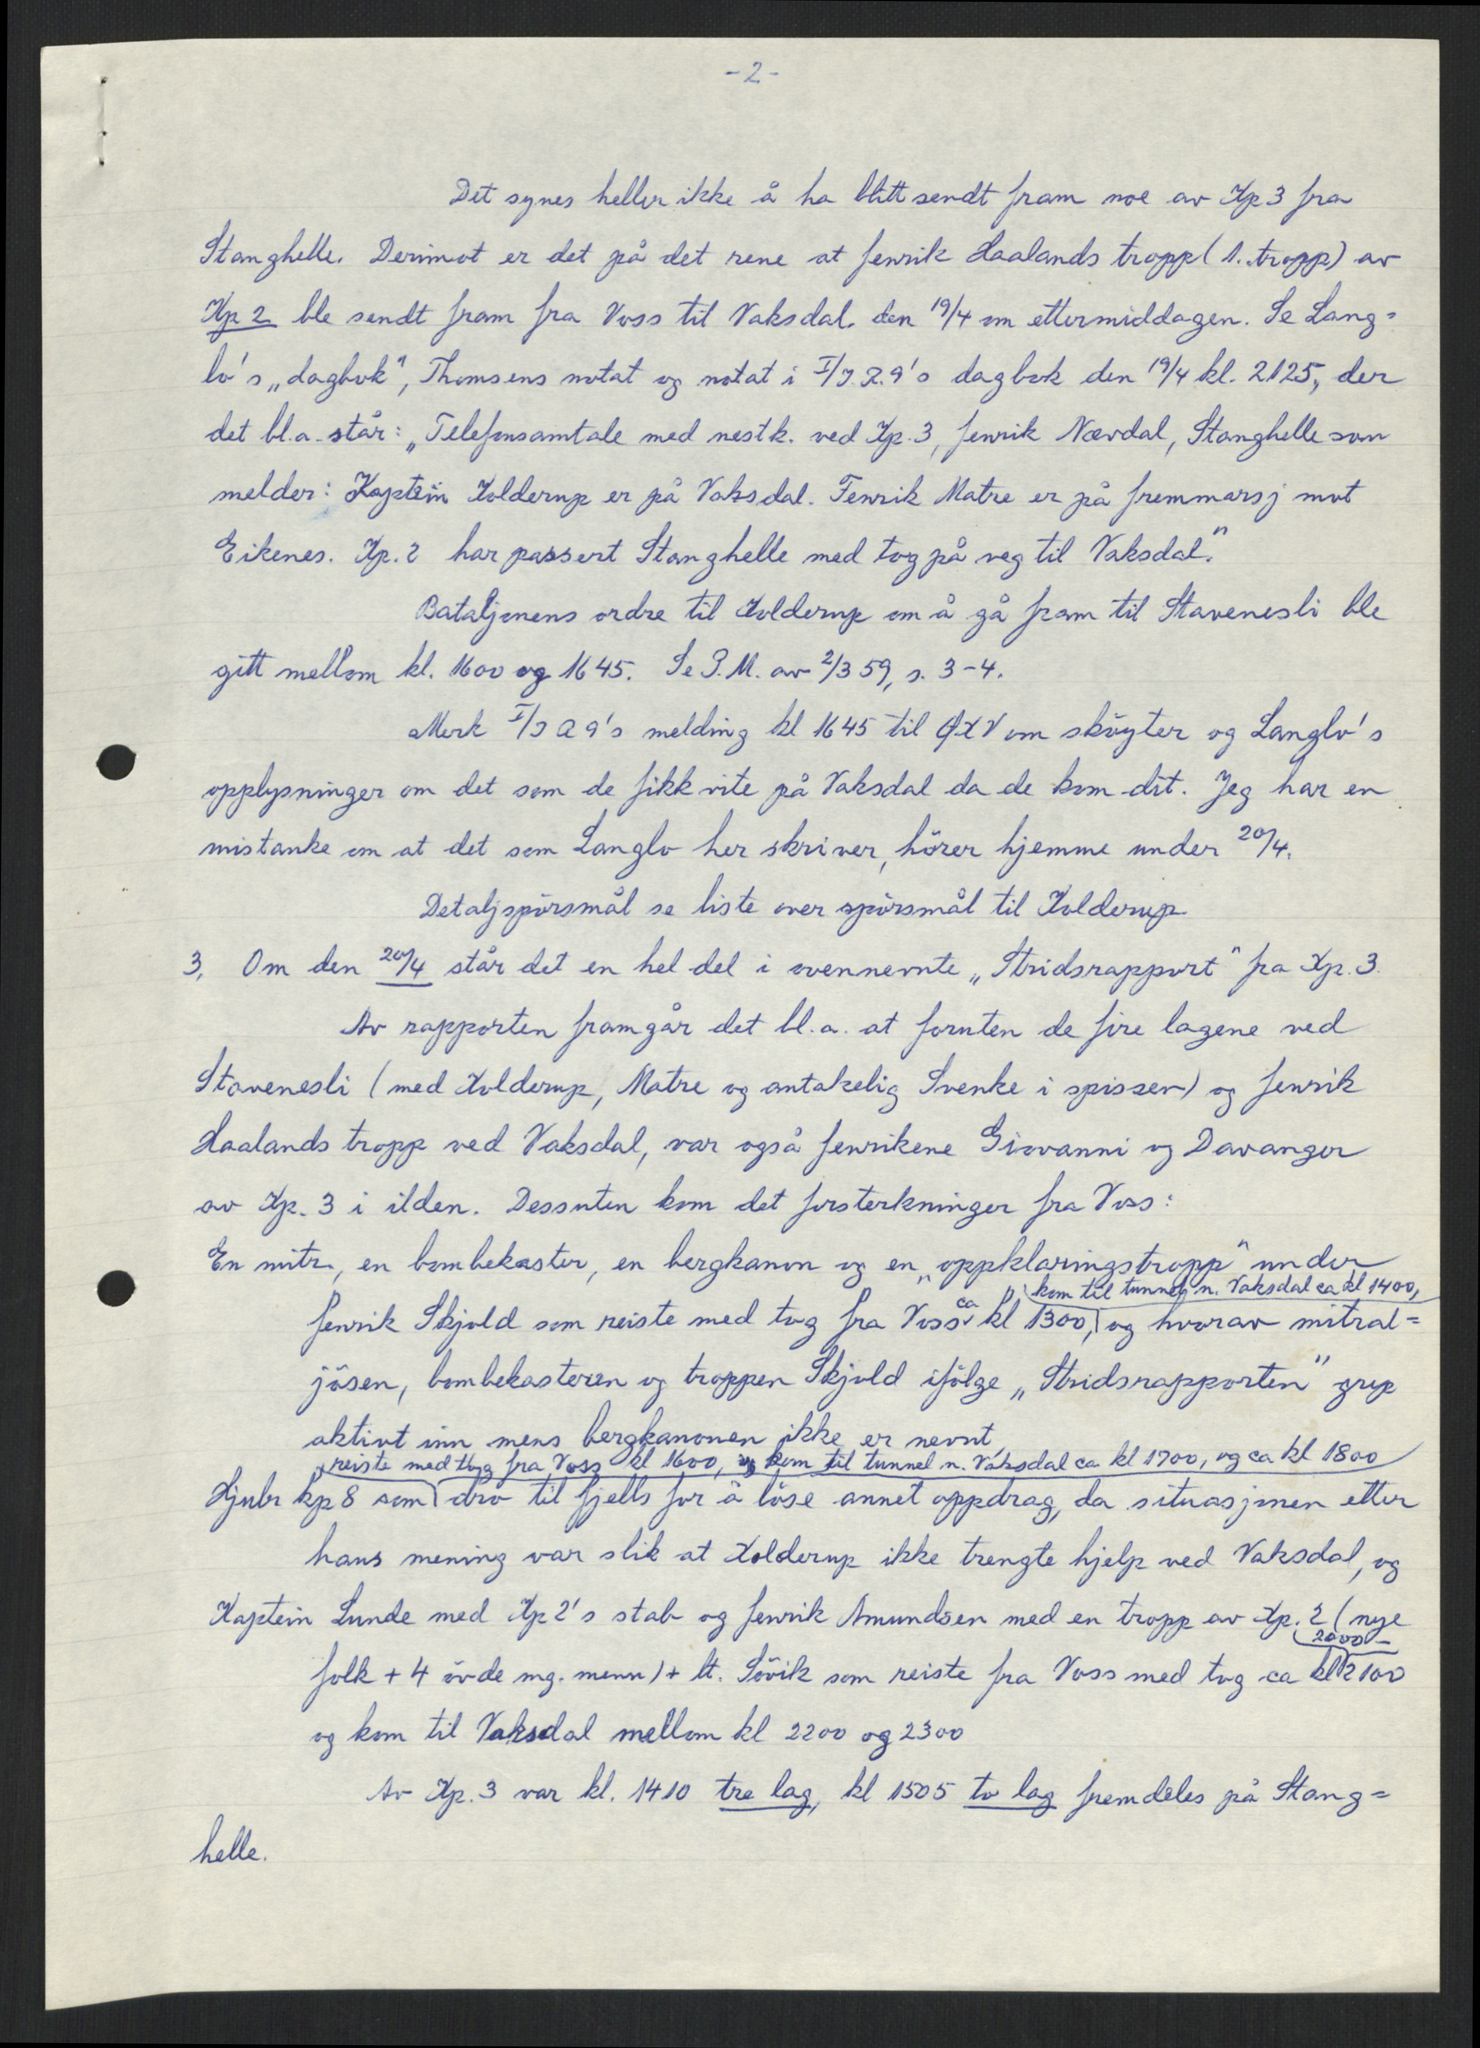 -2-
Det synes heller ikke å ha blitt sendt fram noe av Kp 3 fra
Stanghelle. Derimot er det på det rene at fenrik Haalands tropp (1. tropp) av
Kp 2 ble sendt fram fra Voss til Vaksdal den 19/4 om ettermiddagen. Se Lang=
lo's „dagbok", Thomsens notat og notat i I/J.R.9's dagbok den 19/4 kl. 2125, der
det bl.a. står: „Telefonsamtale med nestk. ved Kp. 3, fenrik Nævdal, Stanghelle som
melder: Kaptein Kolderup er på Vaksdal. Fenrik Matre er på fremmarsj mot
Eikenes. Kp. 2 har passert Stanghelle med tog på veg til Vaksdal."
Bataljonens ordre til Kolderup om å gå fram til Stavenesli ble
gitt mellom kl. 1600 og 1645. Se P.M. av 2/3 59, s. 3-4.
Merk I/J R 9's melding kl 1645 til ØKV om sköyter og Langlo's
opplysninger om det som de fikk vite på Vaksdal da de kom dit. Jeg har en
mistanke om at det som Langlo her skriver, hörer hjemme under 20/4.
Detaljspörsmål se liste over spörsmål til Kolderup
3. Om den 20/4 står det en hel del i ovennevnte „Stridsrapport" fra Kp. 3.
Av rapporten framgår det bl.a. at foruten de fire lagene ved
Stavenesli (med Kolderup, Matre og antakelig Svenke i spissen) og fenrik
Haalands tropp ved Vaksdal, var også fenrikene Giovanni og Davanger
av Kp. 3 i ilden. Dessuten kom det forsterkninger fra Voss:
En mitr., en bombekaster, en bergkanon og en „oppklaringstropp" under
kom til tunnel n. Vaksdal ca kl 1400,
fenrik Skjold som reiste med tog fra Voss ca kl 1300, og hvorav mitral=
jösen, bombekasteren og troppen Skjold ifölge „Stridsrapporten" grep
aktivt inn mens bergkanonen ikke er nevnt,
reiste med tog fra Voss kl 1600, kom til tunnel n. Vaksdal ca kl 1700, og ca kl 1800
Hjulr kp 8 som dro til fjells for å löse annet oppdrag, da situasjonen etter
hans mening var slik at Kolderup ikke trengte hjelp ved Vaksdal, og
Kaptein Lunde med Kp 2's stab og fenrik Amundsen med en tropp av Kp. 2 (nye
2000-
folk + 4 övde mg. menn) + lt. Sövik som reiste fra Voss med tog ca kl 2100
og kom til Vaksdal mellom kl 2200 og 2300
Av Kp. 3 var kl. 1410 tre lag, kl 1505 to lag fremdeles på Stang=
helle.